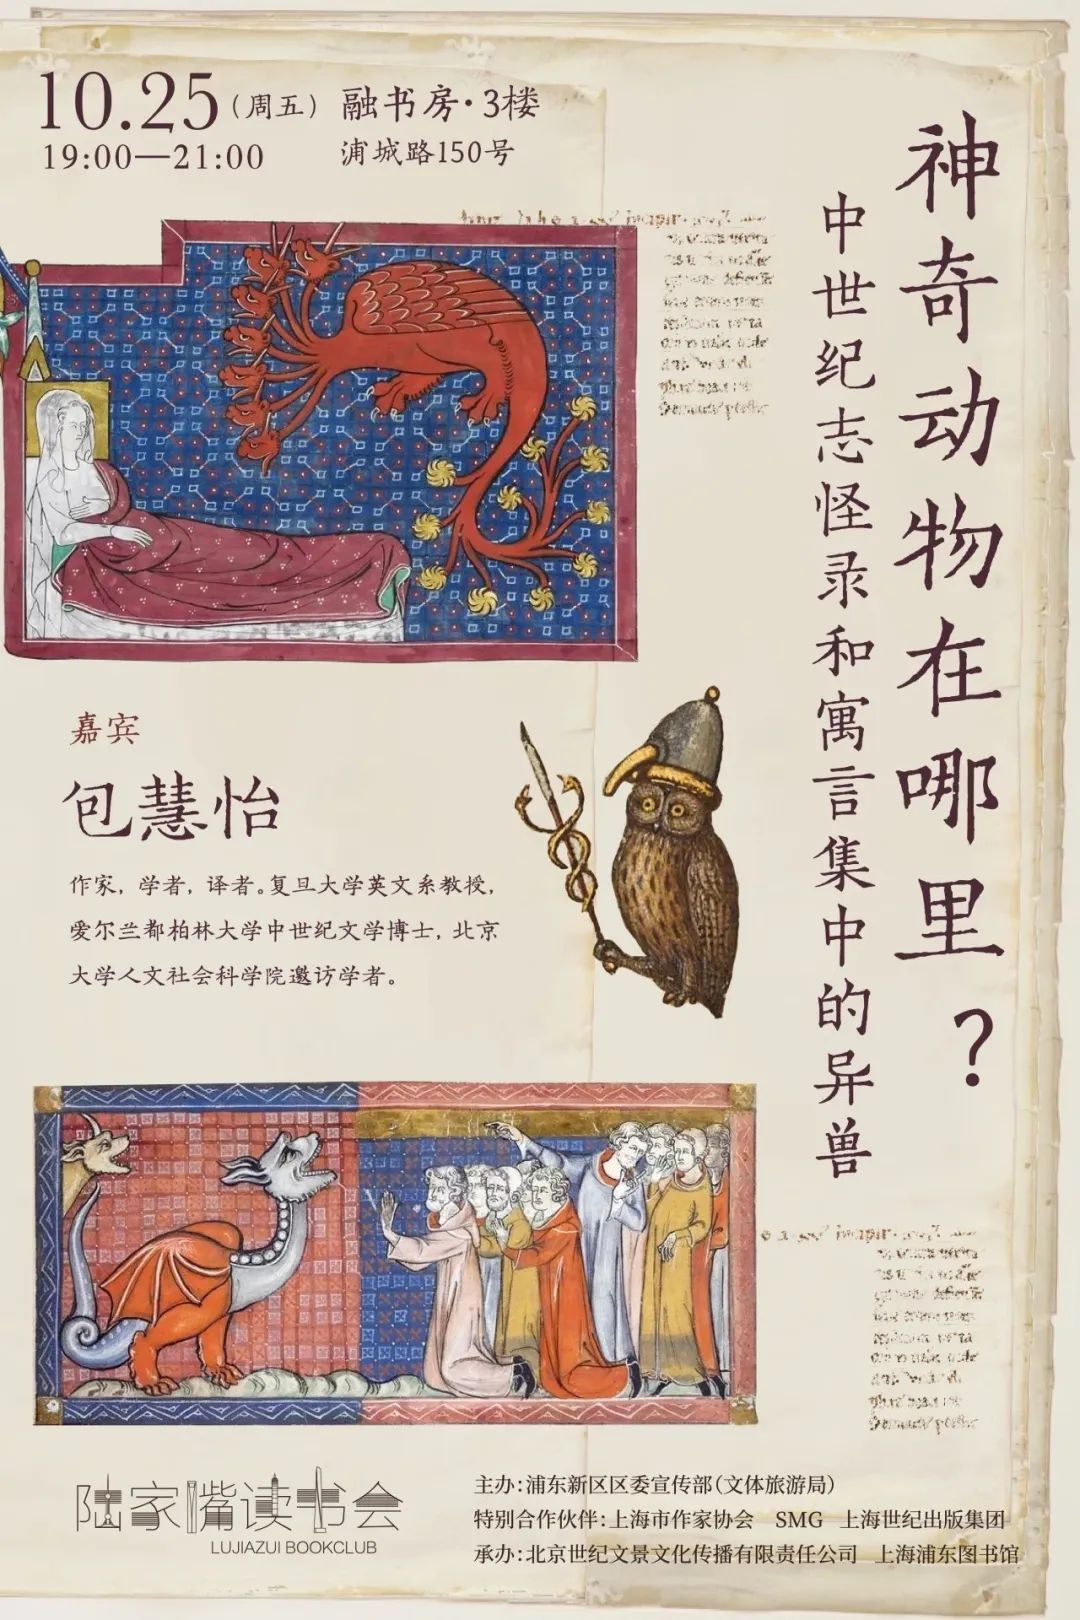 10.25（周五）
19:00—21:00
融书房·3楼
浦城路150号
神奇动物在哪里？
中世纪志怪录和寓言集中的异兽
嘉宾
包慧怡
作家，学者，译者。复旦大学英文系教授，
爱尔兰都柏林大学中世纪文学博士，北京
大学人文社会科学院邀访学者。
陆家嘴读书会
LUJIAZUI BOOKCLUB
主办：浦东新区区委宣传部（文体旅游局）
特别合作伙伴：上海市作家协会 SMG 上海世纪出版集团
承办：北京世纪文景文化传播有限责任公司 上海浦东图书馆